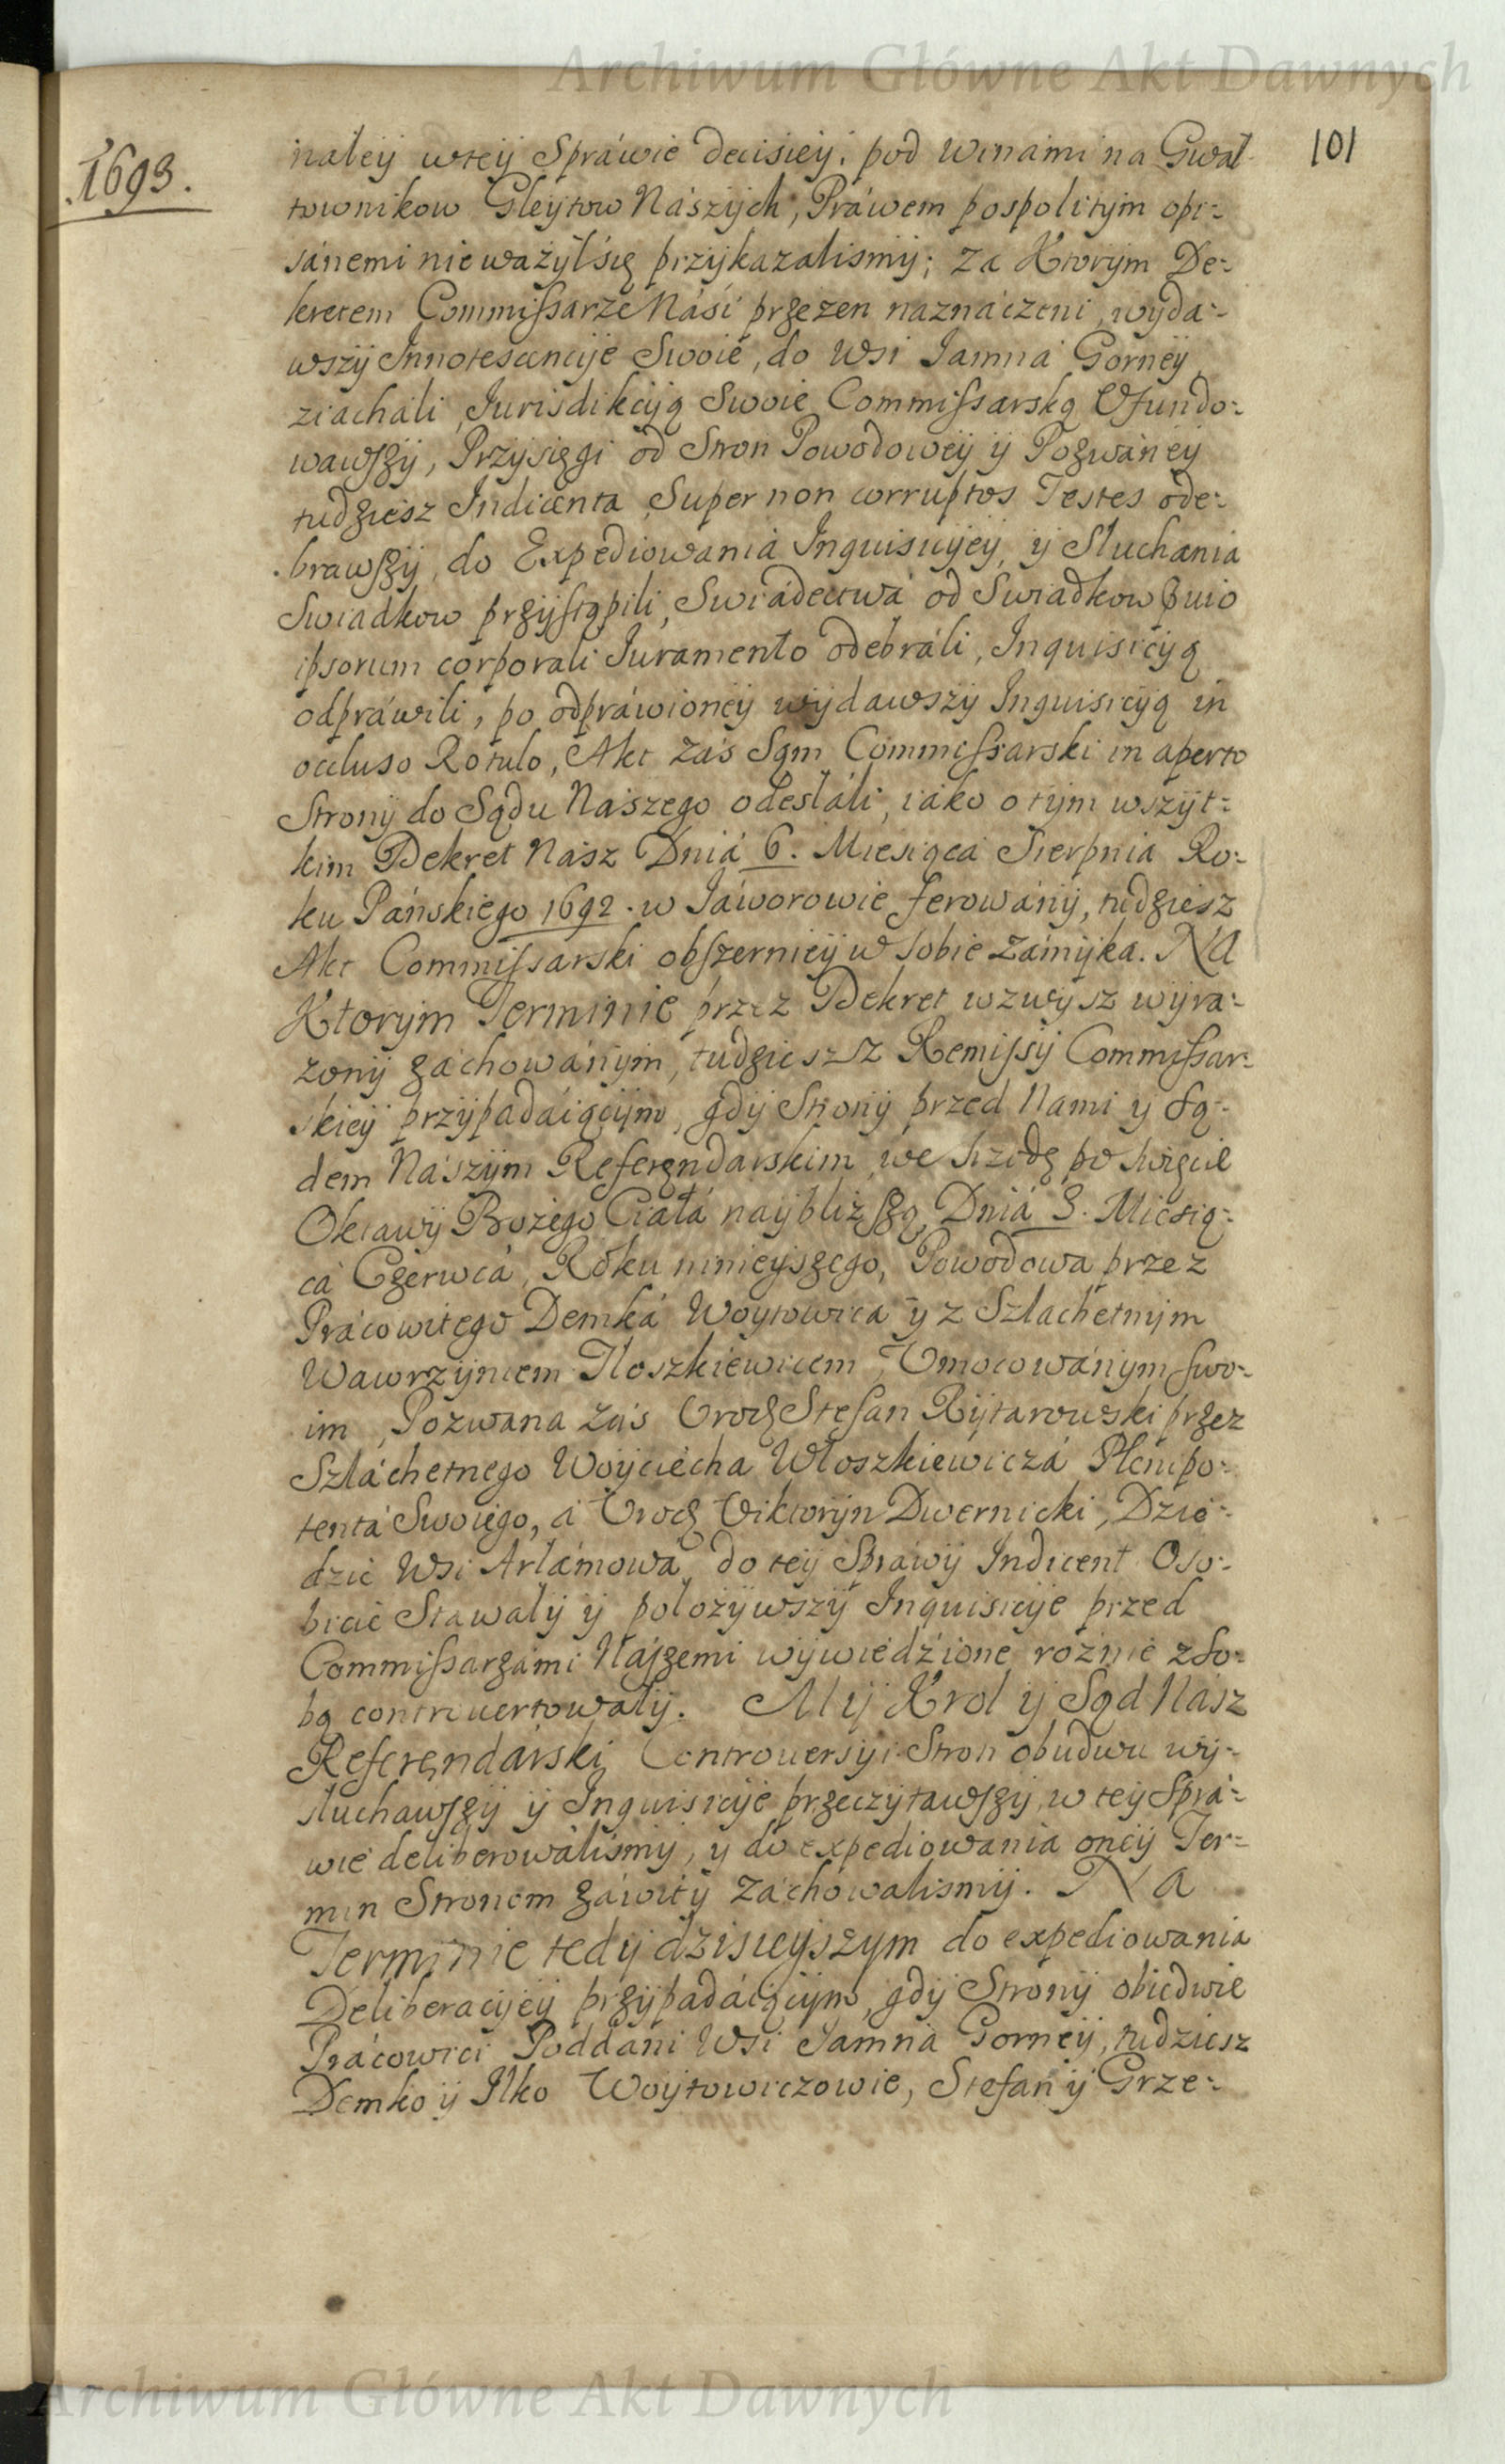 Archiwum Główne Akt Dawnych
101
1693.
naleÿ wteÿ Spráwie decisieÿ, pod winámi na Gwał-
townikow Gleÿtow Nászÿch, Práwem pospolitÿm opi-
sánemi nie ważÿł się przÿkazalismÿ; Za Ktorÿm De-
kretem Commissarze Náśi przezen naznáczeni, wÿda-
wszÿ Innotescencÿe Swoie, do Wsi Jamna Gorneÿ
ziacháli, Jurisdikcÿą Swoię Commissarską Vfundo-
wawszÿ, Przÿsięgi od Stron Powodoweÿ ÿ Pozwáneÿ
tudziesz Indicenta, Super non corruptos Testes ode-
brawszÿ, do Expediowánia Inquisicÿeÿ, ÿ Słuchania
Swiadkow przÿstąpili, Swiádectwá od Swiadkow prævio
ipsorum corporali Juramento odebráli, Inquisicÿą
odpráwili, po odpráwioneÿ wÿdawszÿ Inquisicÿą in
occluso Rotulo, Akt zaś Sąm Commissarski in aperto
Stronÿ do Sądu Nászego odesłáli, iáko o tÿm wszÿt-
kim Dekret Nász Dniá 6. Miesiąca Sierpnia Ro-
ku Páńskiego 1692. w Jáworowie ferowánÿ, tudziesz
Akt Commissarski obszernieÿ w sobie zámÿka. Na
Ktorÿm Terminie przez Dekret wzwÿsz wÿra-
zonÿ záchowánÿm, tudziesz z Remissÿ Commissar-
skieÿ przÿpadáiącÿm, gdÿ Stronÿ przed Nami y Są-
dem Nászÿm Referęndarskim, we srzodę po święcie
Oktawÿ Bożego Ciałá naÿbliższą, Dniá 3. Miesią-
cá Czerwcá, Roku ninieÿszego, Powodowa przez
Prácowitego Demká Woÿtowica ÿ z Szlachetnÿm
Wawrzÿncem Iloszkiewicem, Vmocowánÿm swo-
im, Pozwana zaś Vrodz Stefan Rÿtarowski przez
Szláchetnego Woÿciecha Włoszkiewiczá Plenipo-
tentá Swoiego, á Vrodz Viktorÿn Dwernicki, Dzie-
dzic Wsi Arłámowa, do teÿ Sprawÿ Indicent Oso-
biscie Stawalÿ ÿ położÿwszÿ Inquisicÿe przed
Commissarzámi Nászemi wÿwiedźione rożnie z so-
bą controvertowalÿ. Mÿ Krol ÿ Sąd Nász
Referęndárski Controversÿi Stron obudwu wÿ-
słuchawszÿ ÿ Inquisicÿe przeczÿtawszÿ, w teÿ Sprá-
wie deliberowálismÿ, y do expediowania oneÿ Ter-
min Stronom záwitÿ záchowalismÿ. Na
Terminie tedÿ dzisieÿszym do expediowania
Deliberacÿeÿ przÿpadáiącÿm, gdÿ Stronÿ obiedwie
Prácowici Poddáni Wsi Jamna Gorneÿ, tudziesz
Demko ÿ Ilko Woÿtowiczowie, Stefan ÿ Grze-
Archiwum Główne Akt Dawnych